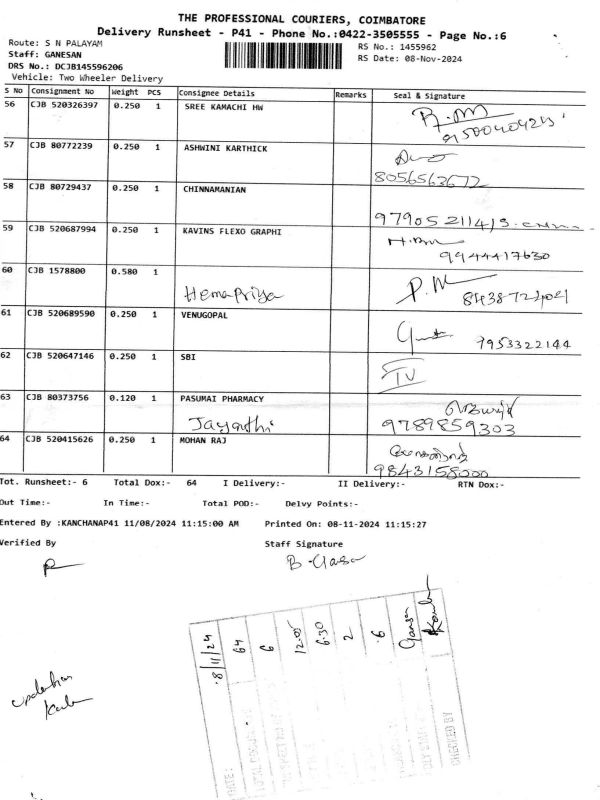 THE PROFESSIONAL COURIERS, COIMBATORE
Delivery Runsheet - P41 - Phone No.:0422-3505555 - Page No.:6
Route: S N PALAYAM
Staff: GANESAN
DRS No.: DCJB145596206
Vehicle: Two Wheeler Delivery
RS No.: 1455962
RS Date: 08-Nov-2024
S No Consignment No Weight PCS Consignee Details Remarks Seal & Signature
56 CJB 520326397 0.250 1 SREE KAMACHI HW
57 CJB 80772239 0.250 1 ASHWINI KARTHICK
8056563672
58 CJB 80729437 0.250 1 CHINNAMANIAN
59 CJB 520687994 0.250 1 KAVINS FLEXO GRAPHI
9944417630
60 CJB 1578800 0.580 1
Hemapriya
61 CJB 520689590 0.250 1 VENUGOPAL
7953322144
62 CJB 520647146 0.250 1 SBI
63 CJB 80373756 0.120 1 PASUMAI PHARMACY
Jayanthi 9789859303
64 CJB 520415626 0.250 1 MOHAN RAJ
9843158000
Tot. Runsheet:- 6 Total Dox:- 64 I Delivery:- II Delivery:- RTN Dox:-
Out Time:- In Time:- Total POD:- Delvy Points:-
Entered By :KANCHANAP41 11/08/2024 11:15:00 AM Printed On: 08-11-2024 11:15:27
Verified By Staff Signature
8/11/24
64
6
12.05
6.30
2
6
DATE:
CHECKED BY